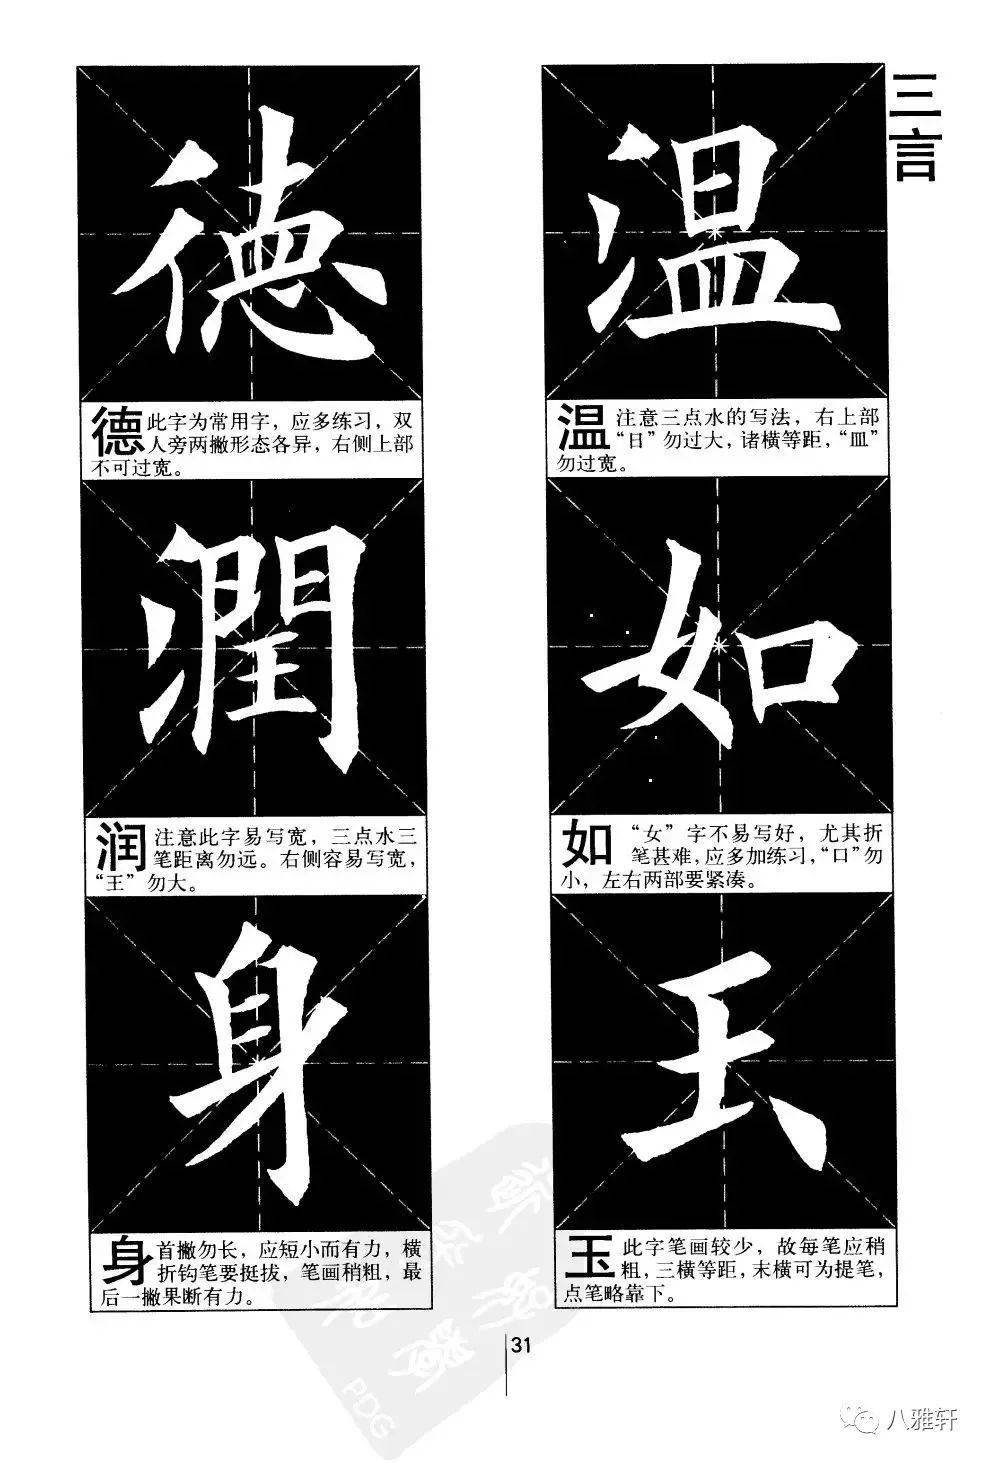 三言
温
温 注意三点水的写法，右上部
“日”勿过大，诸横等距，“皿”
勿过宽。
如
如 “女”字不易写好，尤其折
笔甚难，应多加练习，“口”勿
小，左右两部要紧凑。
玉
玉 此字笔画较少，故每笔应稍
粗，三横等距，末横可为提笔，
点笔略靠下。
德
德 此字为常用字，应多练习，双
人旁两撇形态各异，右侧上部
不可过宽。
潤
润 注意此字易写宽，三点水三
笔距离勿远。右侧容易写宽，
“王”勿大。
身
身 首撇勿长，应短小而有力，横
折钩笔要挺拔，笔画稍粗，最
后一撇果断有力。
31
PDG
八雅轩